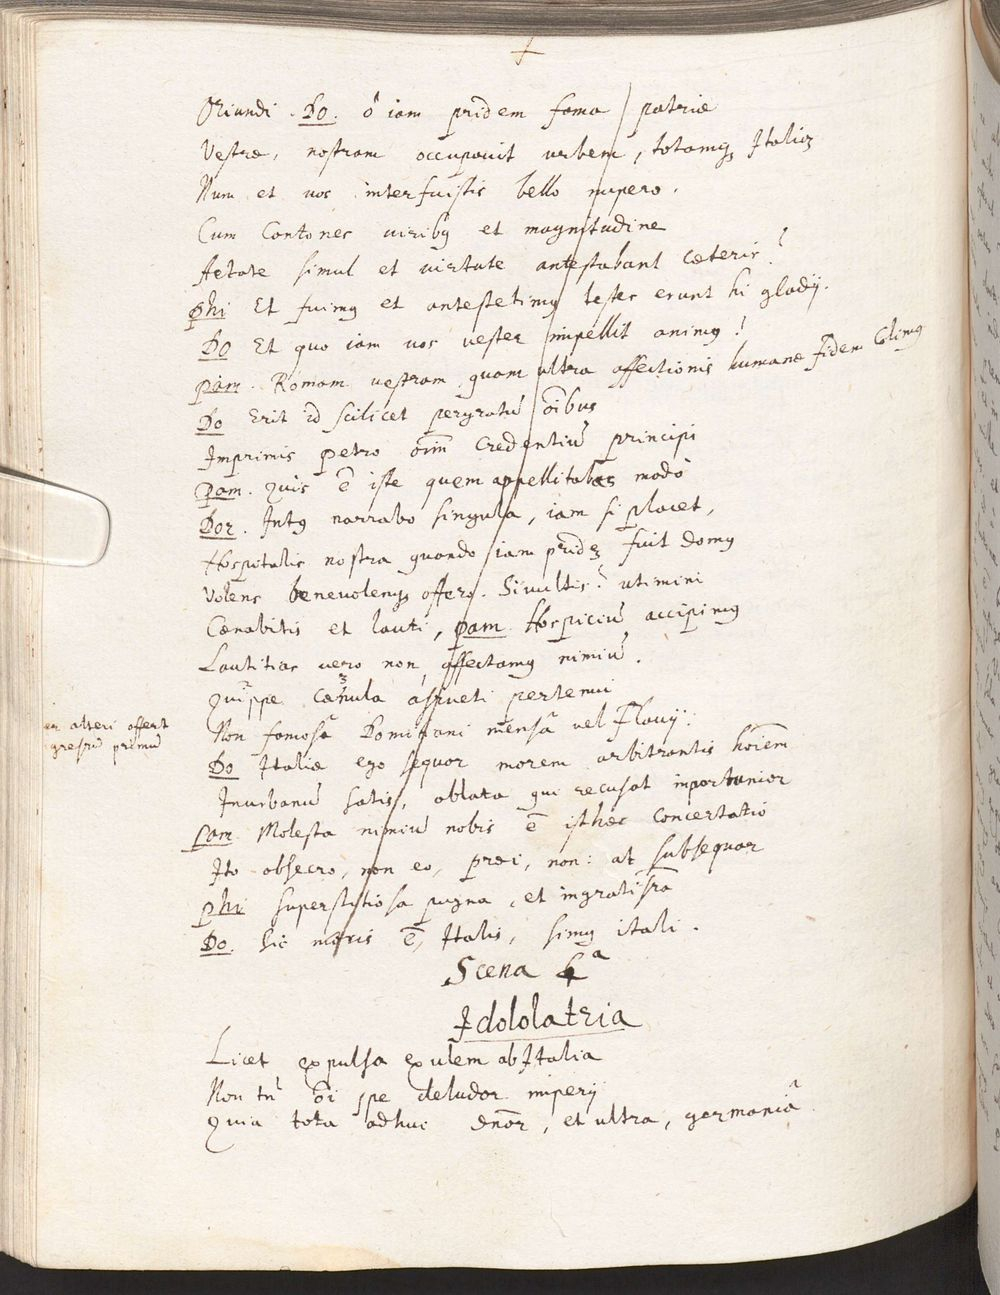 Oriundi. Do. ô iam pridem fama patriæ
Vestræ, nostram occupauit urbem, totamq; Italiã
Num et uos interfuistis bello nupero.
Cum Cantones uiribq et magnitudine
Aetate simul et uirtute antestabant cæteris?
Phi Et fuimq et antestetimq testes erunt hi gladij.
Do Et quo iam uos uester impellit animq?
Pam. Romam uestram quam ultra affectionis humanæ fidem Colimq
Do Erit id scilicet pergratũ õibus
Imprimis petro oĩm Credentiũ principi
Pam. Quis ẽ iste quem appellitabas modò
Dor. Intq narrabo singula, iam si placet,
Hospitalis nostra quando iam pridẽ fuit domq
Volens beneuolensq offero. Siuultis? utimini
Cænabitis et lauti, Pam Hospiciũ accipimq
Lautitias uero non affectamq nimiũ.
Quippe Cænula assueti pertenui
Non famosâ Domitiani mensâ uel Flauij.
ei alteri offert
gressũ primũ
Do Italiæ ego sequor morem arbitrantis hõiem
Inurbanũ satis, oblata qui recusat importunior
Pam Molesta nimiũ nobis ẽ isthæc Concertatio
Ito obsecro, non eo, præi, non: at subsequar
Phi Superstitiosa pugna, et ingratissĩa
Do. Sic moris ẽ, Italis, simq itali.
Scena 6ª
Idololatria
Licet expulsa exulem ab Italia
Non tñ õi spe deludor imperij
Quia tota adhuc, et ultra, germaniâ